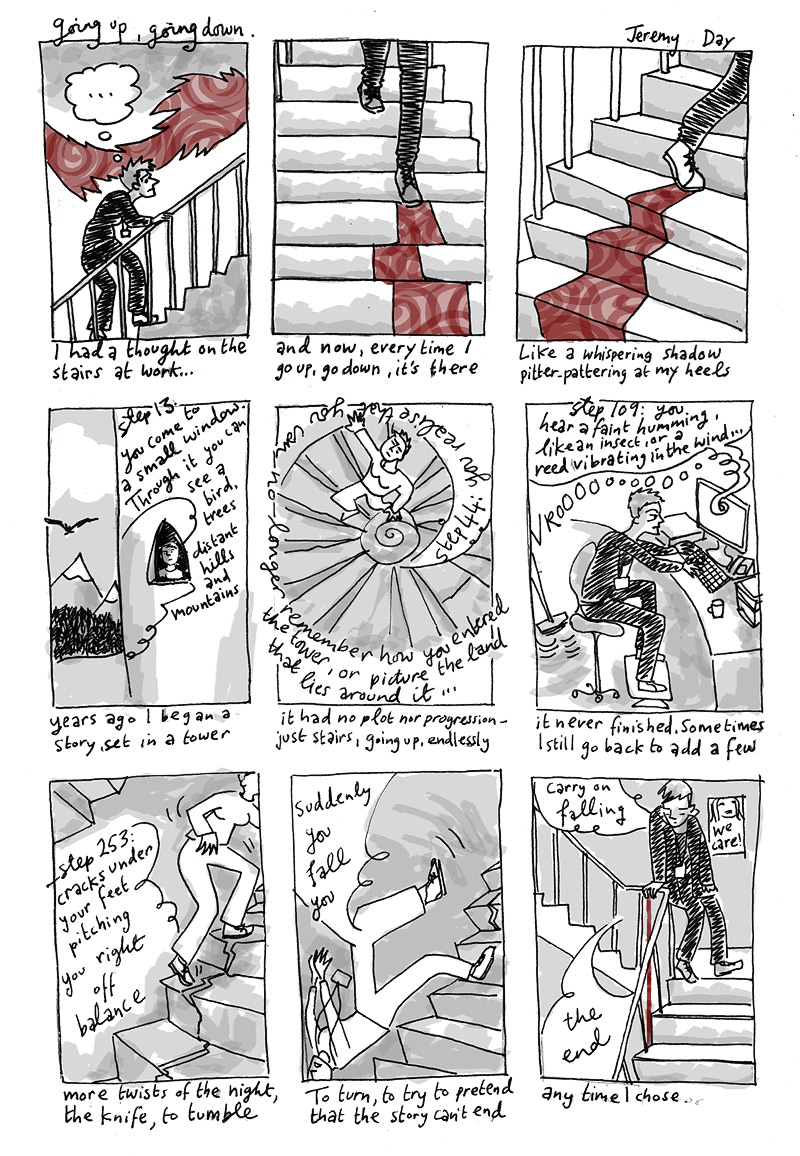 going up, going down.
Jeremy Day
...
I had a thought on the
stairs at work...
and now, every time I
go up, go down, it's there
Like a whispering shadow
pitter-pattering at my heels
step 13:
you come to
a small window.
Through it you can
see a
bird,
trees
distant
hills
and
mountains
years ago I began a
story, set in a tower
step 44:
you realise that you can
no longer
remember how you entered
the tower, or picture the land
that lies around it...
it had no plot nor progression -
just stairs, going up, endlessly
step 109: you
hear a faint humming,
like an insect, or a
reed vibrating in the wind...
VROOOooooooooo
it never finished. Sometimes
I still go back to add a few
step 253:
cracks under
your feet
pitching
you right
off
balance
more twists of the night,
the knife, to tumble
Suddenly
you
fall
you
To turn, to try to pretend
that the story can't end
Carry on
falling
we
care!
the
end
any time I chose.